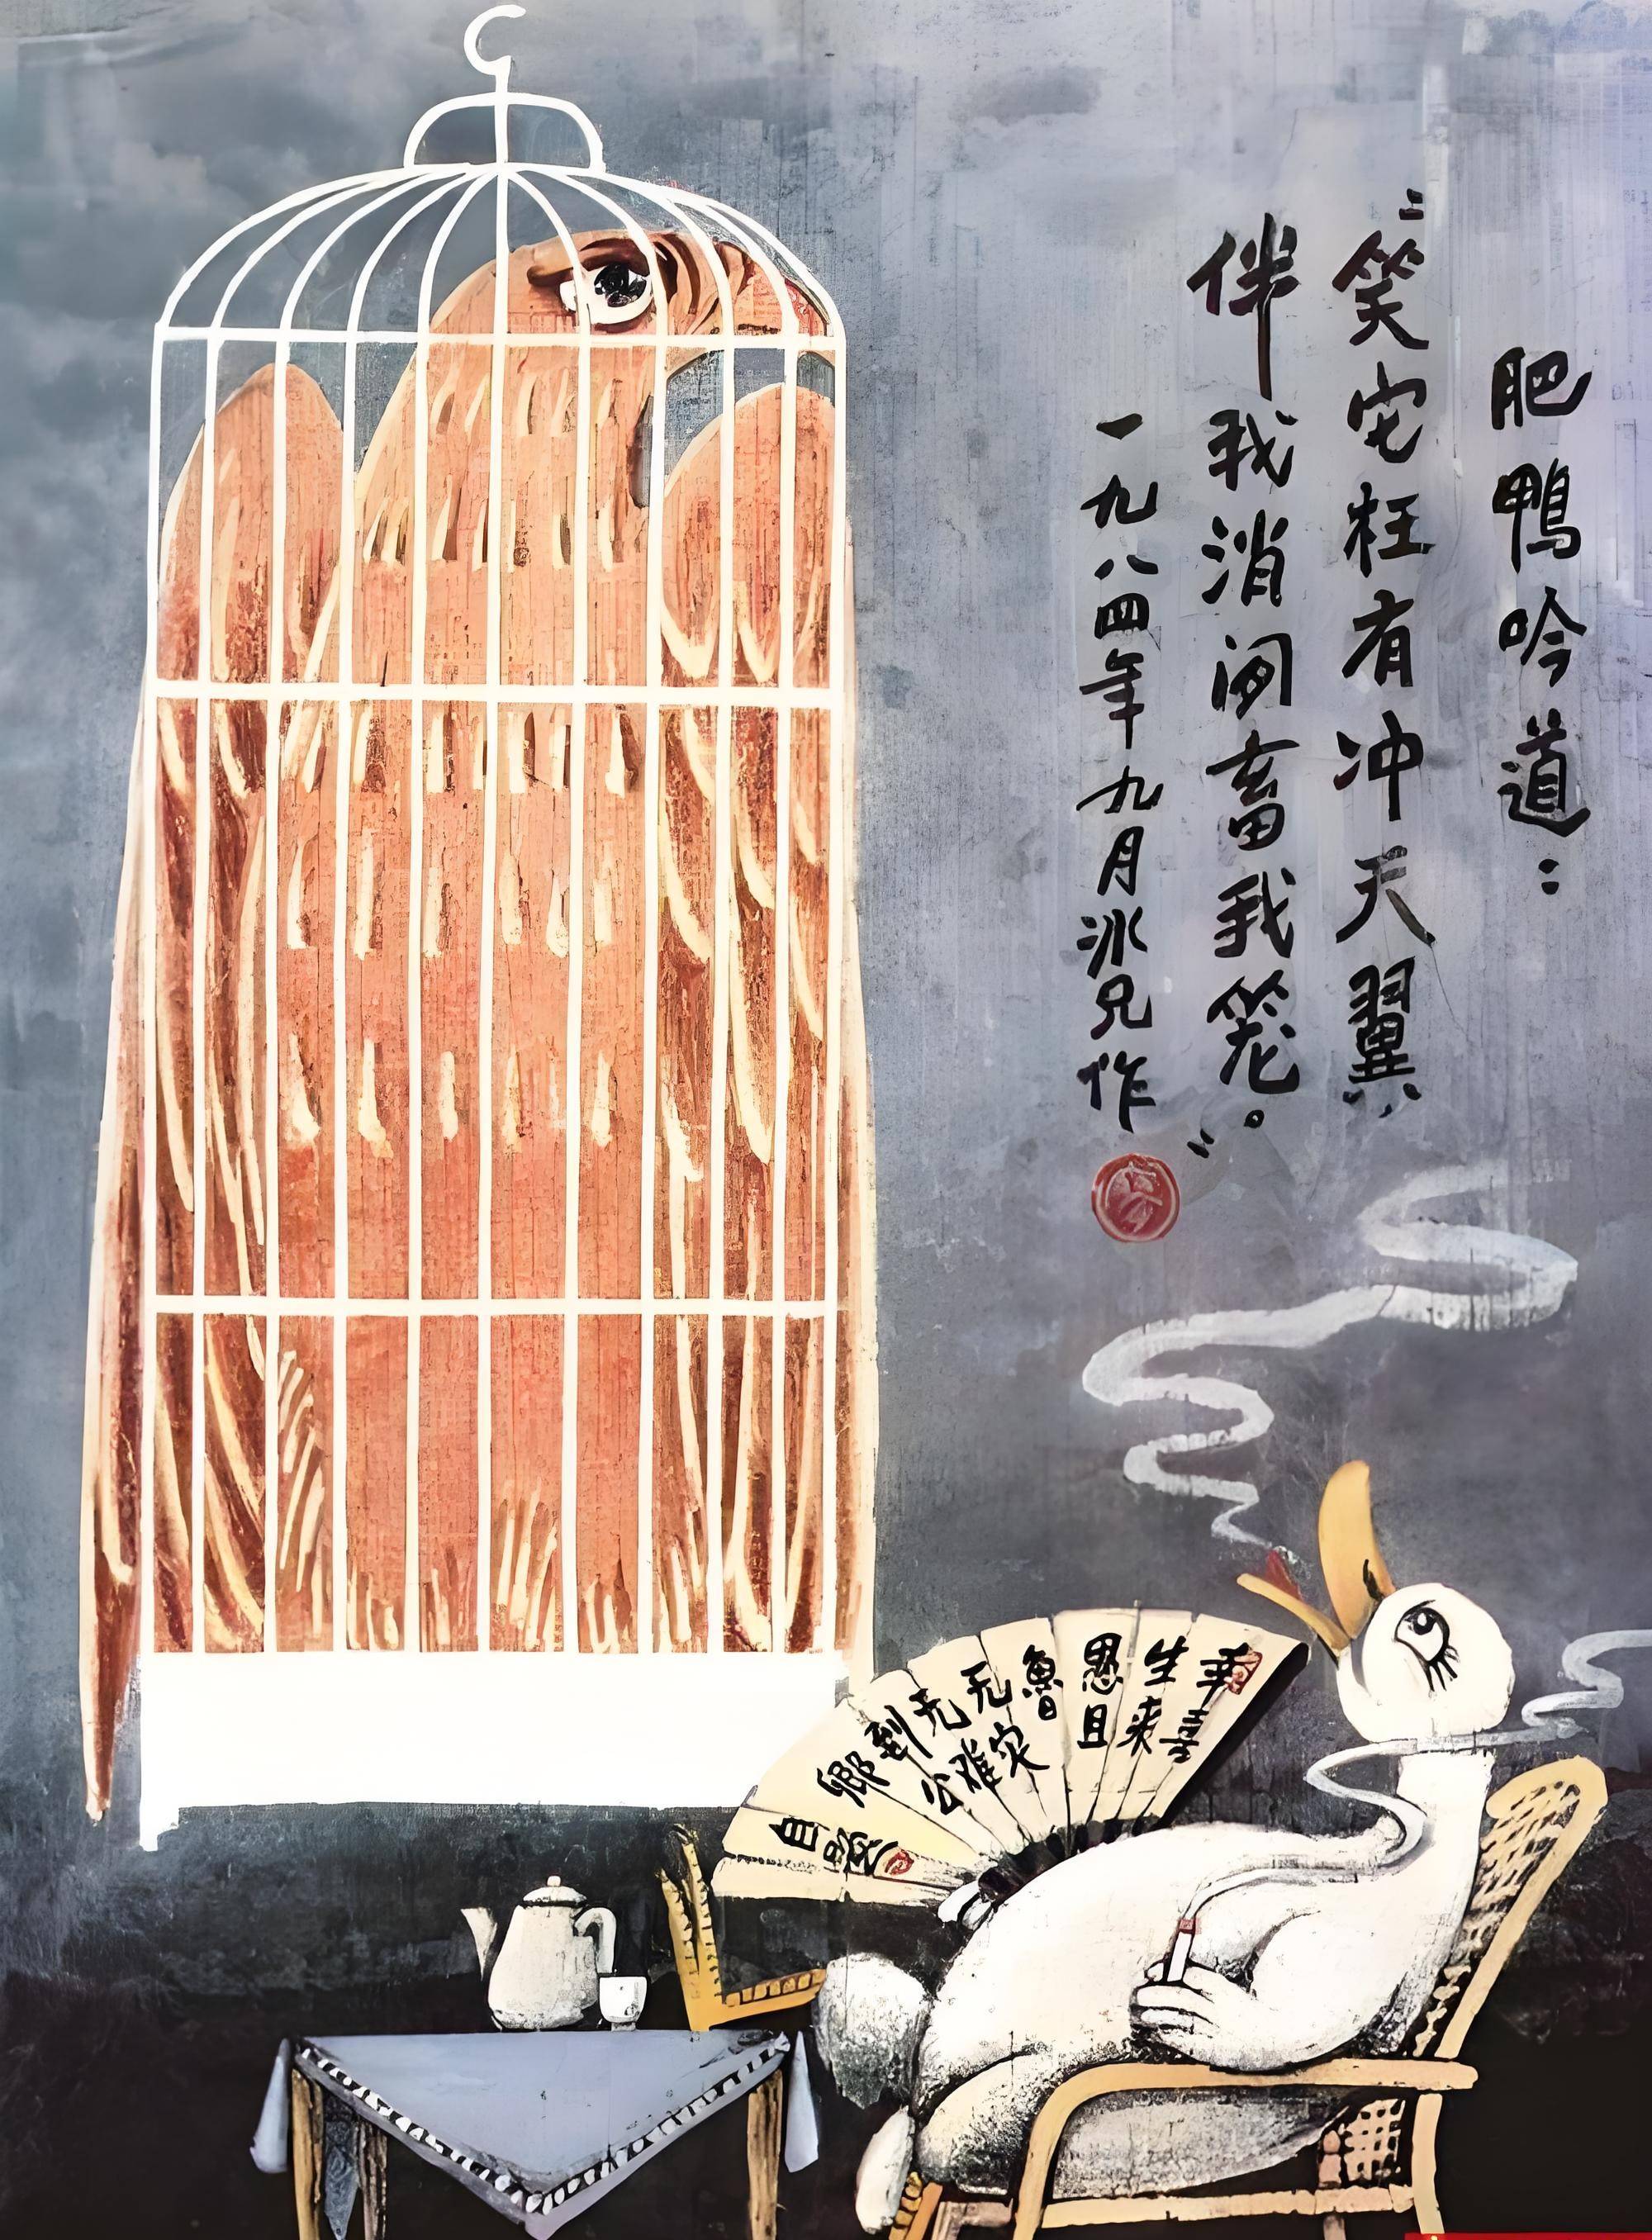 肥鴨吟道：
“笑它枉有冲天翼，
伴我消闲畜我笼。”
一九八四年九月冰兄作
幸喜
生来
愚且
魯
无灾
无难
到公
卿
自题